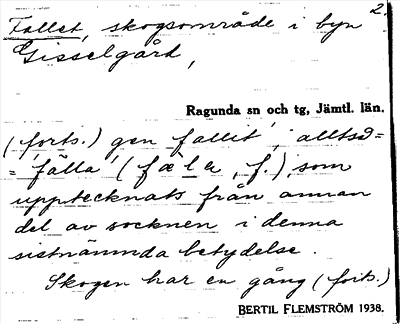 2.
Fallet, skogsområde i byn
Gisselgård,
Ragunda sn och tg, Jämtl. län.
(forts.) gen fallit; alltså =
= 'fälla' (fæla, f.), som
upptecknats från annan
del av socknen i denna
sistnämnda betydelse.
Skogen har en gång (forts.)
BERTIL FLEMSTRÖM 1938.